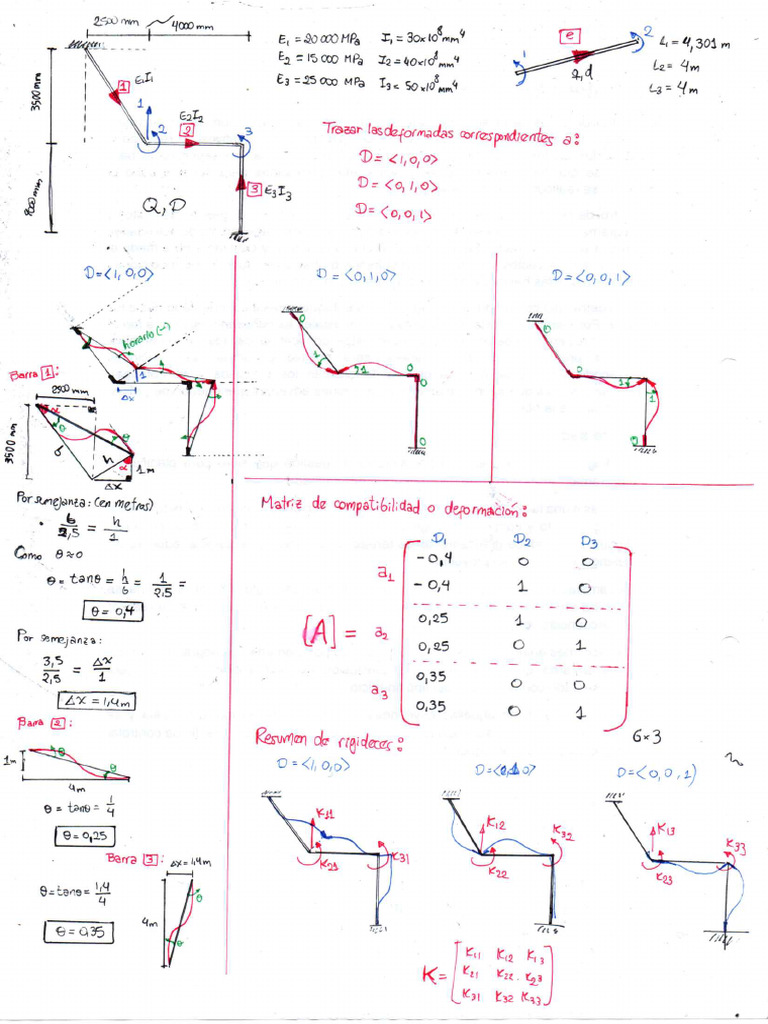 2500 mm 4000 mm
3500 mm
4000 mm
E₁I₁
1
1
2
E₂I₂
2
3
3
E₃I₃
Q, D
E₁ = 20000 MPa I₁ = 30x10⁸mm⁴
E₂ = 15000 MPa I₂ = 40x10⁸mm⁴
E₃ = 25000 MPa I₃ = 50x10⁸mm⁴
e
1
2
q,d
L₁ = 4,301 m
L₂ = 4m
L₃ = 4m
Trazar las deformadas correspondientes a:
D = <1,0,0>
D = <0,1,0>
D = <0,0,1>
D = <1,0,0>
horario (-)
1
Δx
D = <0,1,0>
0
1
0
0
D = <0,0,1>
0
0
1
1
0
Barra 1:
2500 mm
3500 mm
α
θ
θ
b
h
α
1m
Δx
Por semejanza: (en metros)
b/2,5 = h/1
Como θ≈0
θ = tanθ = h/b = 1/2,5 =
θ = 0,4
Por semejanza:
3,5/2,5 = Δx/1
Δx = 1,4m
Barra 2:
1m
θ
θ
4m
θ = tanθ = 1/4
θ = 0,25
Barra 3:
Δx = 1,4m
4m
θ
θ
θ = tanθ = 1,4/4
θ = 0,35
Matriz de compatibilidad o deformación:
D₁ D₂ D₃
[A] =
a₁
-0,4 0 0
-0,4 1 0
a₂
0,25 1 0
0,25 0 1
a₃
0,35 0 0
0,35 0 1
6x3
Resumen de rigideces:
D = <1,0,0>
K11
K21
K31
D = <0,1,0>
K12
K22
K32
D = <0,0,1)
K13
K23
K33
K =
K11 K12 K13
K21 K22 K23
K31 K32 K33